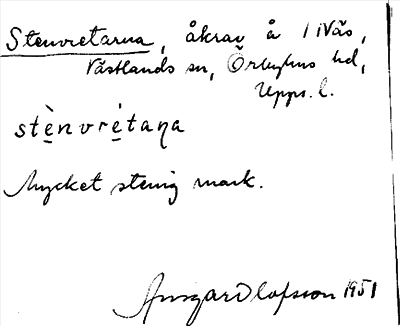 Stenvretarna, åkrar å 1 i Vås,
Västlands sn, Örbyhus hd,
Upps. l.
stènvré̀taṇa
Mycket stenig mark.
Ansgar Olofsson 1951